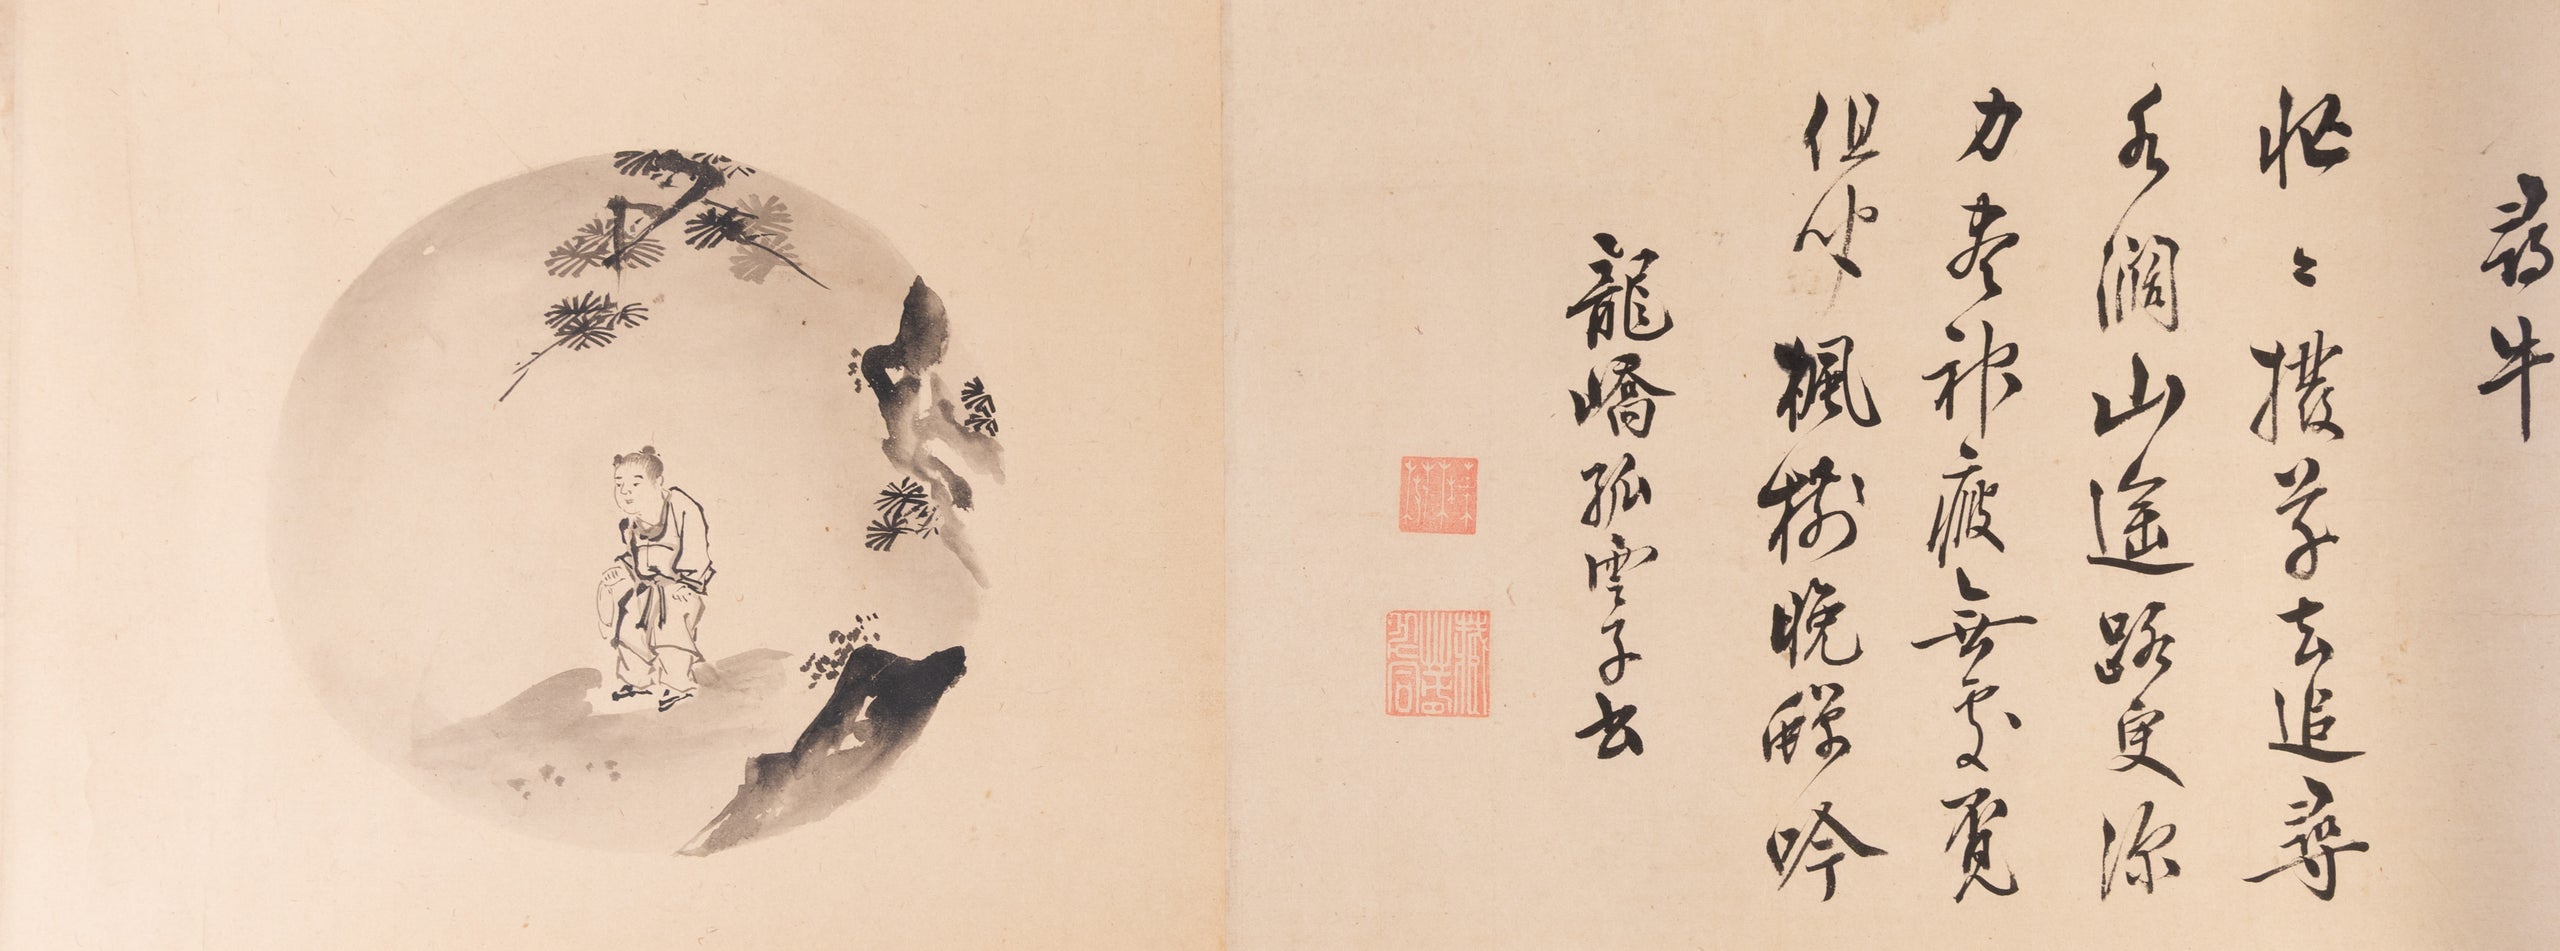 尋牛
忙〻撥草去追尋
水濶山遥路更深
力盡神疲無處覓
但聞楓樹晚蟬吟
龍嶠孤雲子書